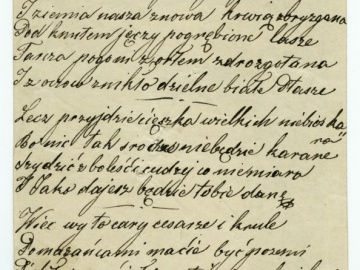 I ziemia nasza znowu krwią zbryzgana
Pod knutem jęczy pogrębione Lasze
Tarcza pogoni z orłem zdrozgotana
I z oczow znikło dzielne białe Ptasze
Lecz przyjdzie cieszka wielkich niebios kara
Bo nic tak srodze niebędzie karane
na
szydzić z boleści cudzej co niemiara
I Jako dajesz będzie tobie dane
Więc wy to cary cesarze i krule
Pomazańcami macie być